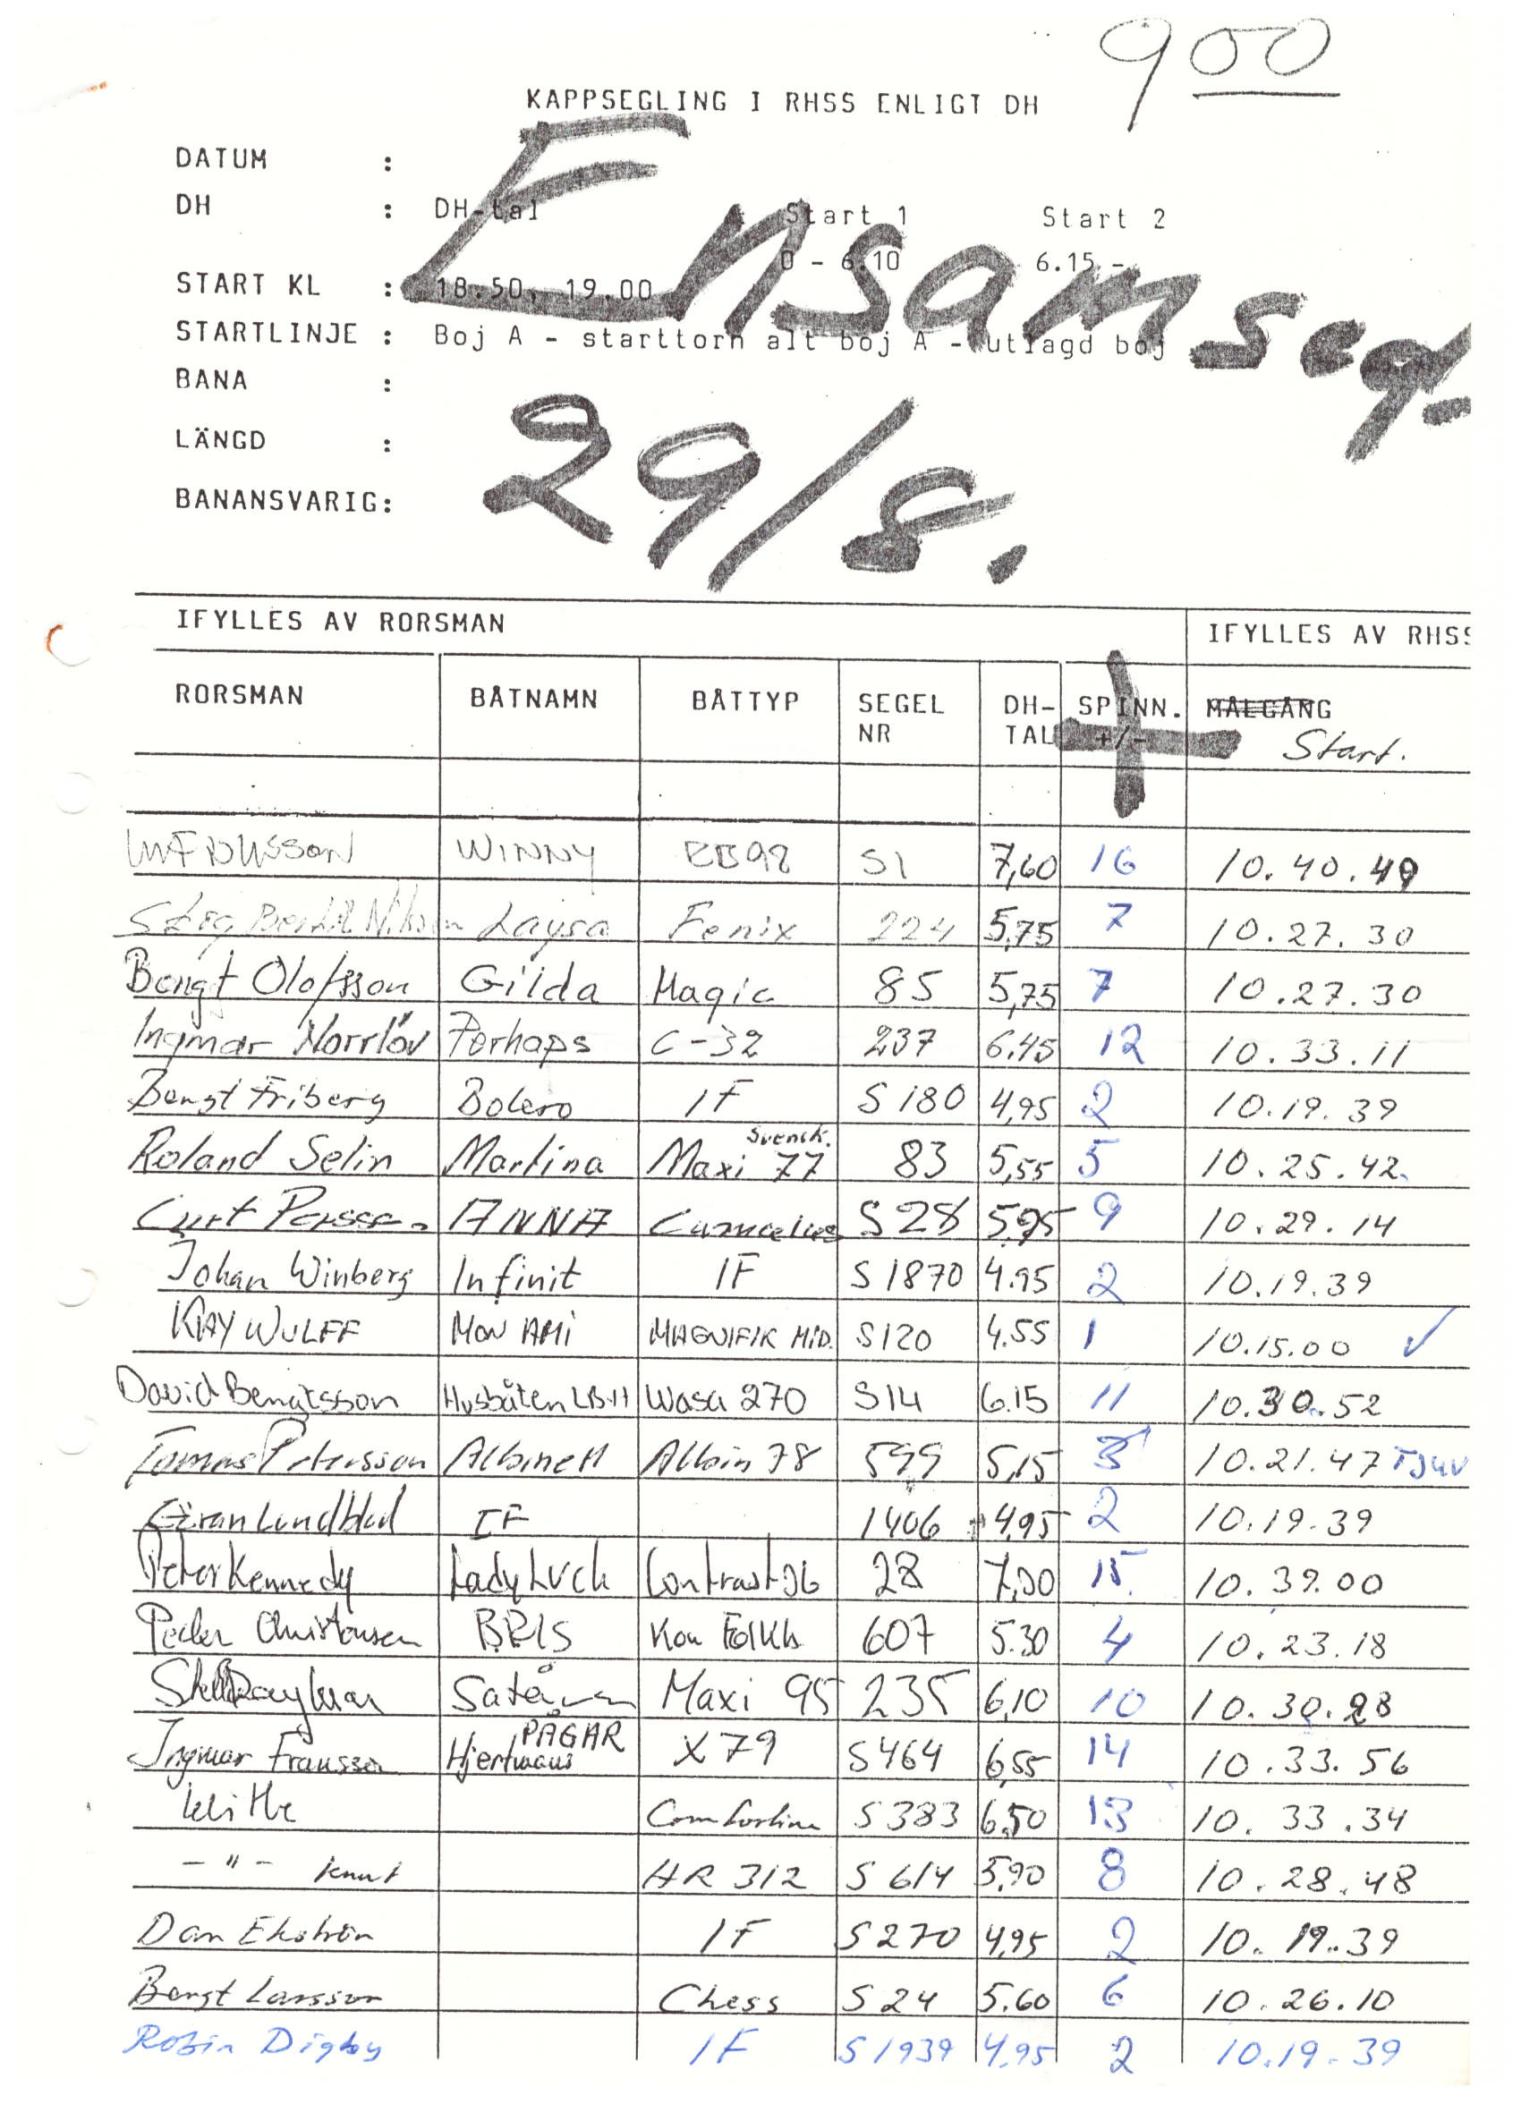 900
KAPPSEGLING I RHSS ENLIGT DH
DATUM :
DH : DH-tal Start 1 Start 2
0 - 6.10 6.15 -
START KL : 18.50, 19.00
Ensamseg-
STARTLINJE : Boj A - starttorn alt boj A - utlagd boj
BANA :
LÄNGD :
29/8.
BANANSVARIG:
IFYLLES AV RORSMAN IFYLLES AV RHSS
RORSMAN BÅTNAMN BÅTTYP SEGEL NR DH-TAL SPINN. +/- MÅLGÅNG
Start.
WINNY S1 7,60 16 10.40.49
Laysa Fenix 224 5,75 7 10.27.30
Bengt Olofsson Gilda Magic 85 5,75 7 10.27.30
Ingmar Norrlöv Perhaps C-32 237 6.45 12 10.33.11
Bengt Friberg Bolero IF S 180 4,95 2 10.19.39
Roland Selin Martina Maxi 77 83 5,55 5 10.25.42
Curt ANNA S 28 5,95 9 10.29.14
Johan Winberg Infinit IF S 1870 4.95 2 10.19.39
KAY WULFF MON AMI MAGNIFIK MID. S120 4.55 1 10.15.00 ✓
David Bengtsson Husbåten Wasa 270 S14 6.15 11 10.30.52
Tomas Petersson Albin 78 599 5,15 3 10.21.47 TJUV
Göran Lundblad IF 1406 4,95 2 10.19.39
Peter Kennedy Lady Luck Contrast 36 28 7,00 15 10.39.00
Peder Christensen BRIS 607 5.30 4 10.23.18
Maxi 95 235 6,10 10 10.30.28
PÅGAR
Ingmar Fransson Hjertmans X79 S464 6,55 14 10.33.56
Comfortina S 383 6,50 13 10.33.34
- " - Knut HR 312 S 614 5,90 8 10.28.48
Dan Ekström IF S 270 4,95 2 10.19.39
Bengt Larsson Chess S 24 5.60 6 10.26.10
Robin Digby IF S 1939 4.95 2 10.19.39